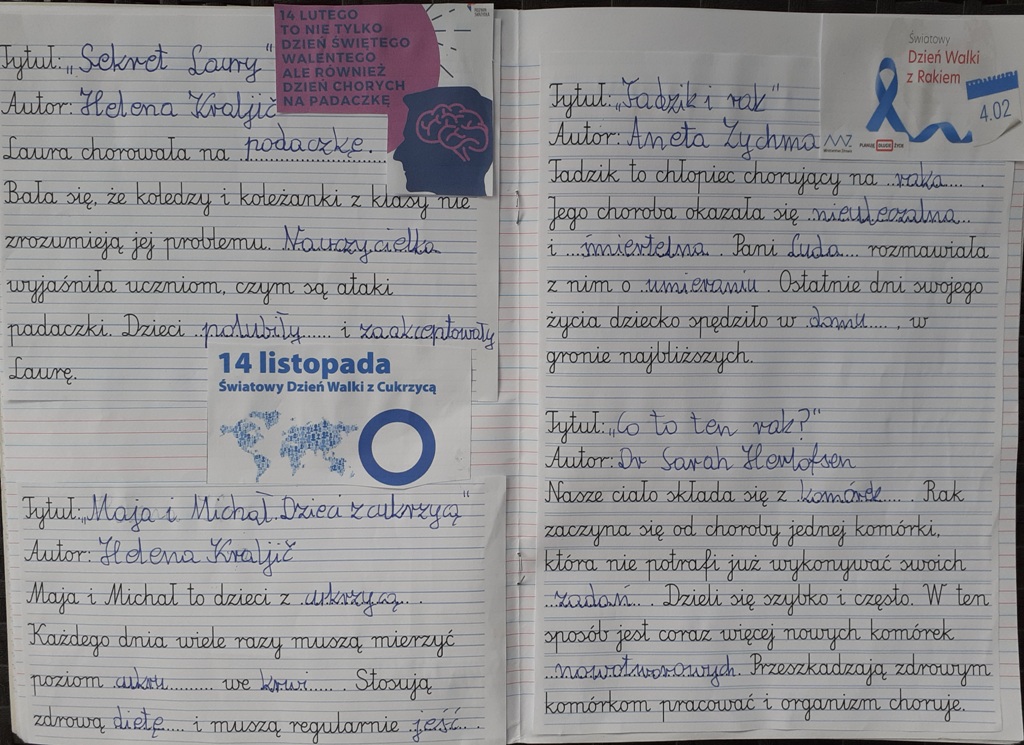 14 LUTEGO
TO NIE TYLKO
DZIEŃ ŚWIĘTEGO
WALENTEGO
ALE RÓWNIEŻ
DZIEŃ CHORYCH
NA PADACZKĘ
Tytuł: „Sekret Laury"
Autor: Helena Kraljič
Laura chorowała na padaczkę.
Bała się, że koledzy i koleżanki z klasy nie
zrozumieją jej problemu. Nauczycielka
wyjaśniła uczniom, czym są ataki
padaczki. Dzieci polubiły..... i zaakceptowały
Laurę.
14 listopada
Światowy Dzień Walki z Cukrzycą
Tytuł: „Maja i Michał. Dzieci z cukrzycą"
Autor: Helena Kraljič
Maja i Michał to dzieci z cukrzycą.
Każdego dnia wiele razy muszą mierzyć
poziom cukru......... we krwi...... . Stosują
zdrową dietę.... i muszą regularnie jeść....
Światowy
Dzień Walki
z Rakiem
4.02
Tytuł: „Tadzik i rak"
Autor: Aneta Zychma
Tadzik to chłopiec chorujący na ..raka.... .
Jego choroba okazała się nieuleczalna..
i ...śmiertelna. Pani Luda.... rozmawiała
z nim o ..umieraniu. Ostatnie dni swojego
życia dziecko spędziło w domu...., w
gronie najbliższych.
Tytuł: „Co to ten rak?"
Autor: Dr Sarah Herlofsen
Nasze ciało składa się z komórek..... . Rak
zaczyna się od choroby jednej komórki,
która nie potrafi już wykonywać swoich
..zadań... . Dzieli się szybko i często. W ten
sposób jest coraz więcej nowych komórek
..nowotworowych. Przeszkadzają zdrowym
komórkom pracować i organizm choruje.